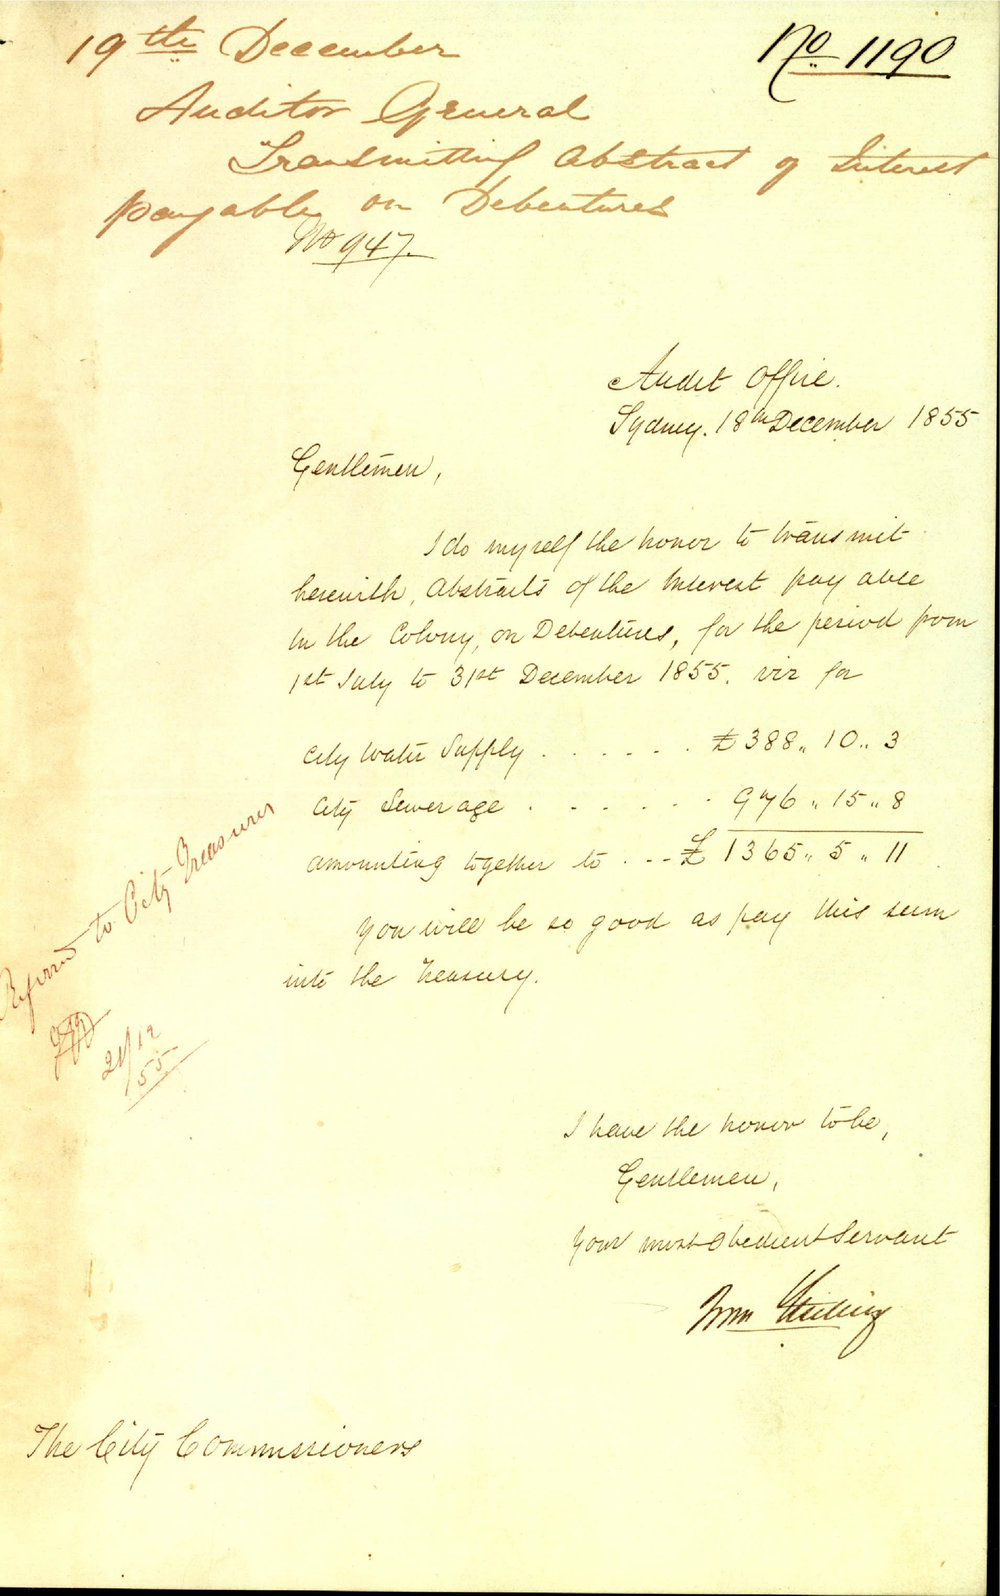 No 1190
19th December
Auditor General
Transmitting Abstract of Interest
payable on Debentures
No 947.
Audit Office.
Sydney. 18th December 1855
Gentlemen,
I do myself the honor to transmit
herewith, Abstracts of the Interest payable
in the Colony, on Debentures, for the period from
1st July to 31st December 1855. viz for
City Water Supply . . . . . . £388,, 10,, 3
City Sewerage . . . . . . . 976,, 15,, 8
amounting together to . . . £ 1365,, 5,, 11
You will be so good as pay this sum
into the Treasury.
Referred to City Treasurer
21/12
55
I have the honor to be,
Gentlemen,
Your most obedient Servant
Wm
The City Commissioners